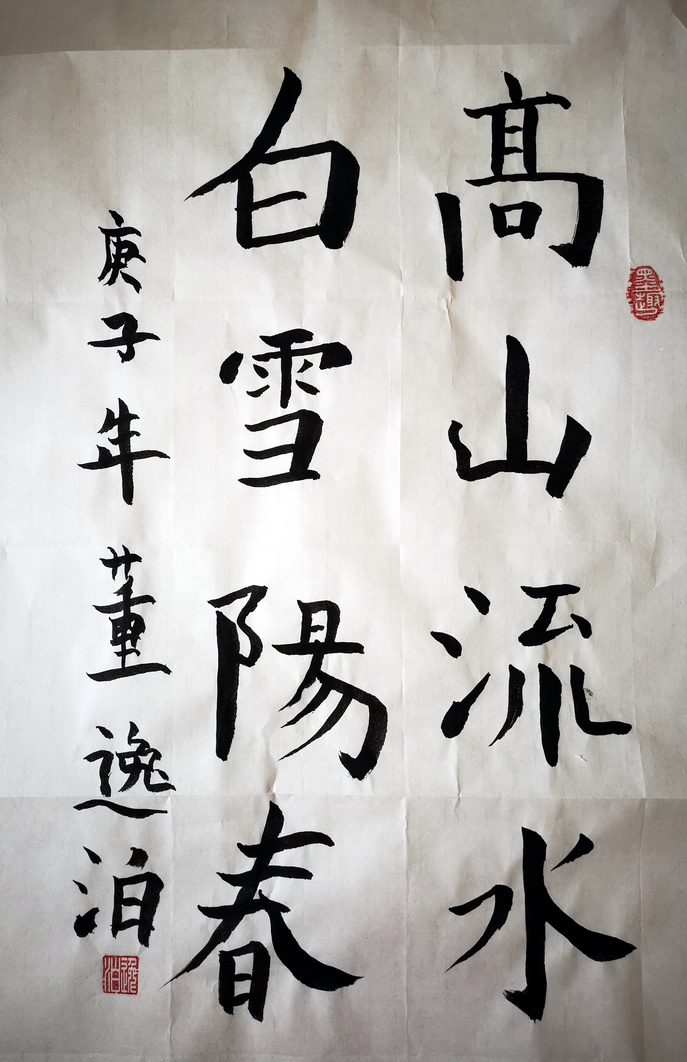 高山流水
白雪陽春
庚子年董逸泊
墨趣
逸泊